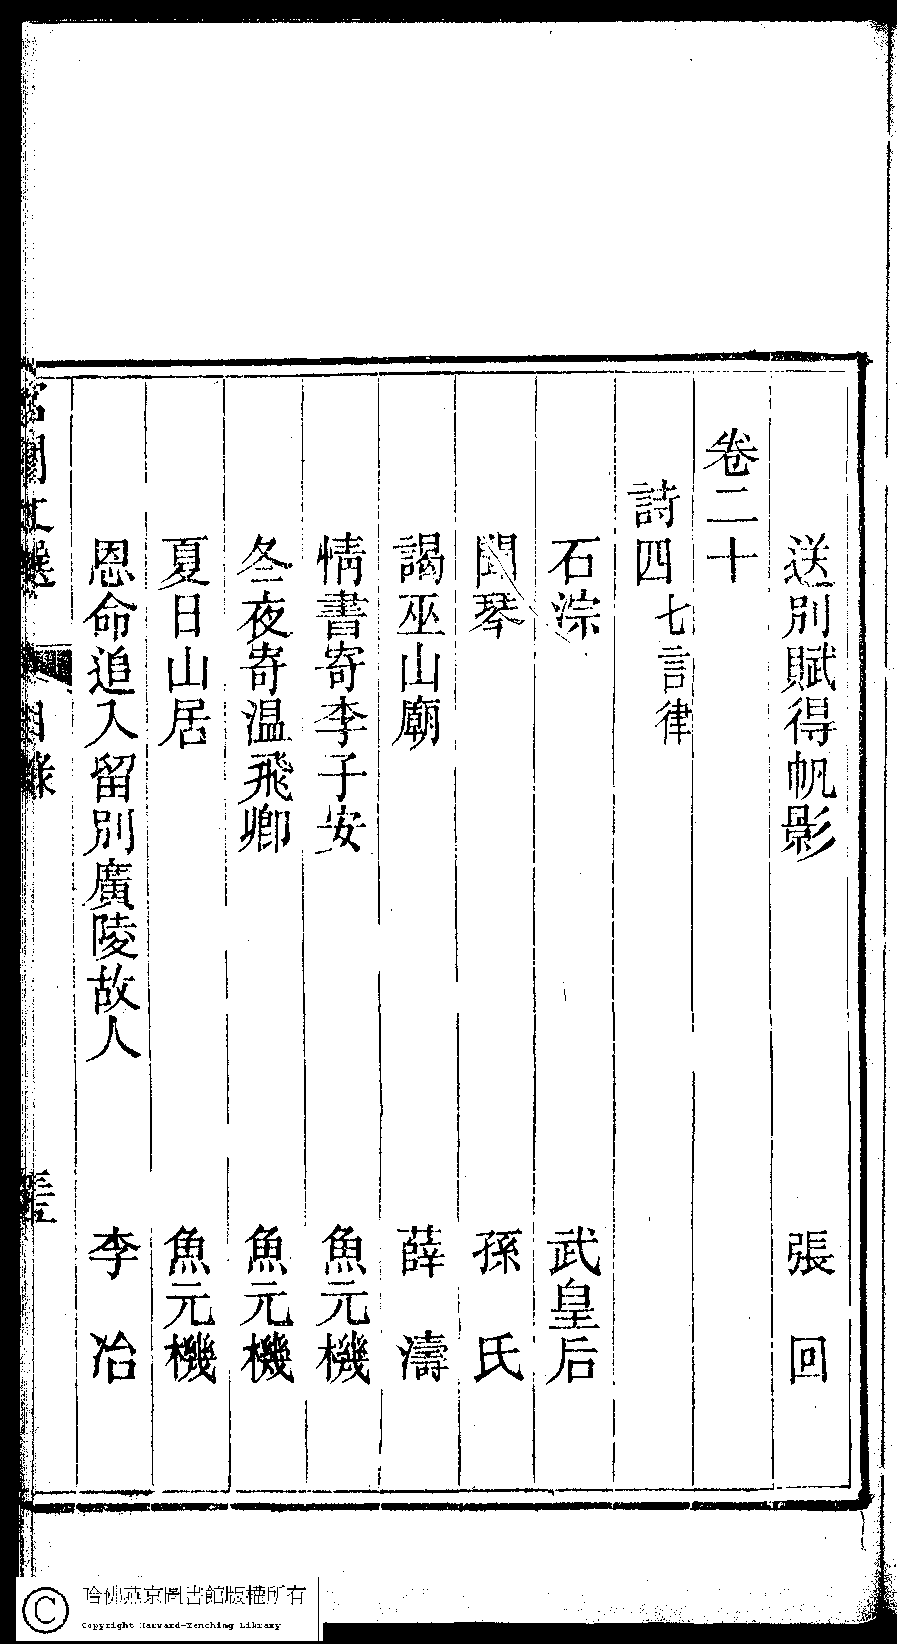 送別賦得帆影 張回
卷二十
詩四 七言律
石淙 武皇后
聞琴 孫氏
謁巫山廟 薛濤
情書寄李子安 魚元機
冬夜寄温飛卿 魚元機
夏日山居 魚元機
恩命追入留別廣陵故人 李冶
宮閨文選 目錄
哈佛燕京圖書館版權所有
Copyright Harvard-Yenching Library